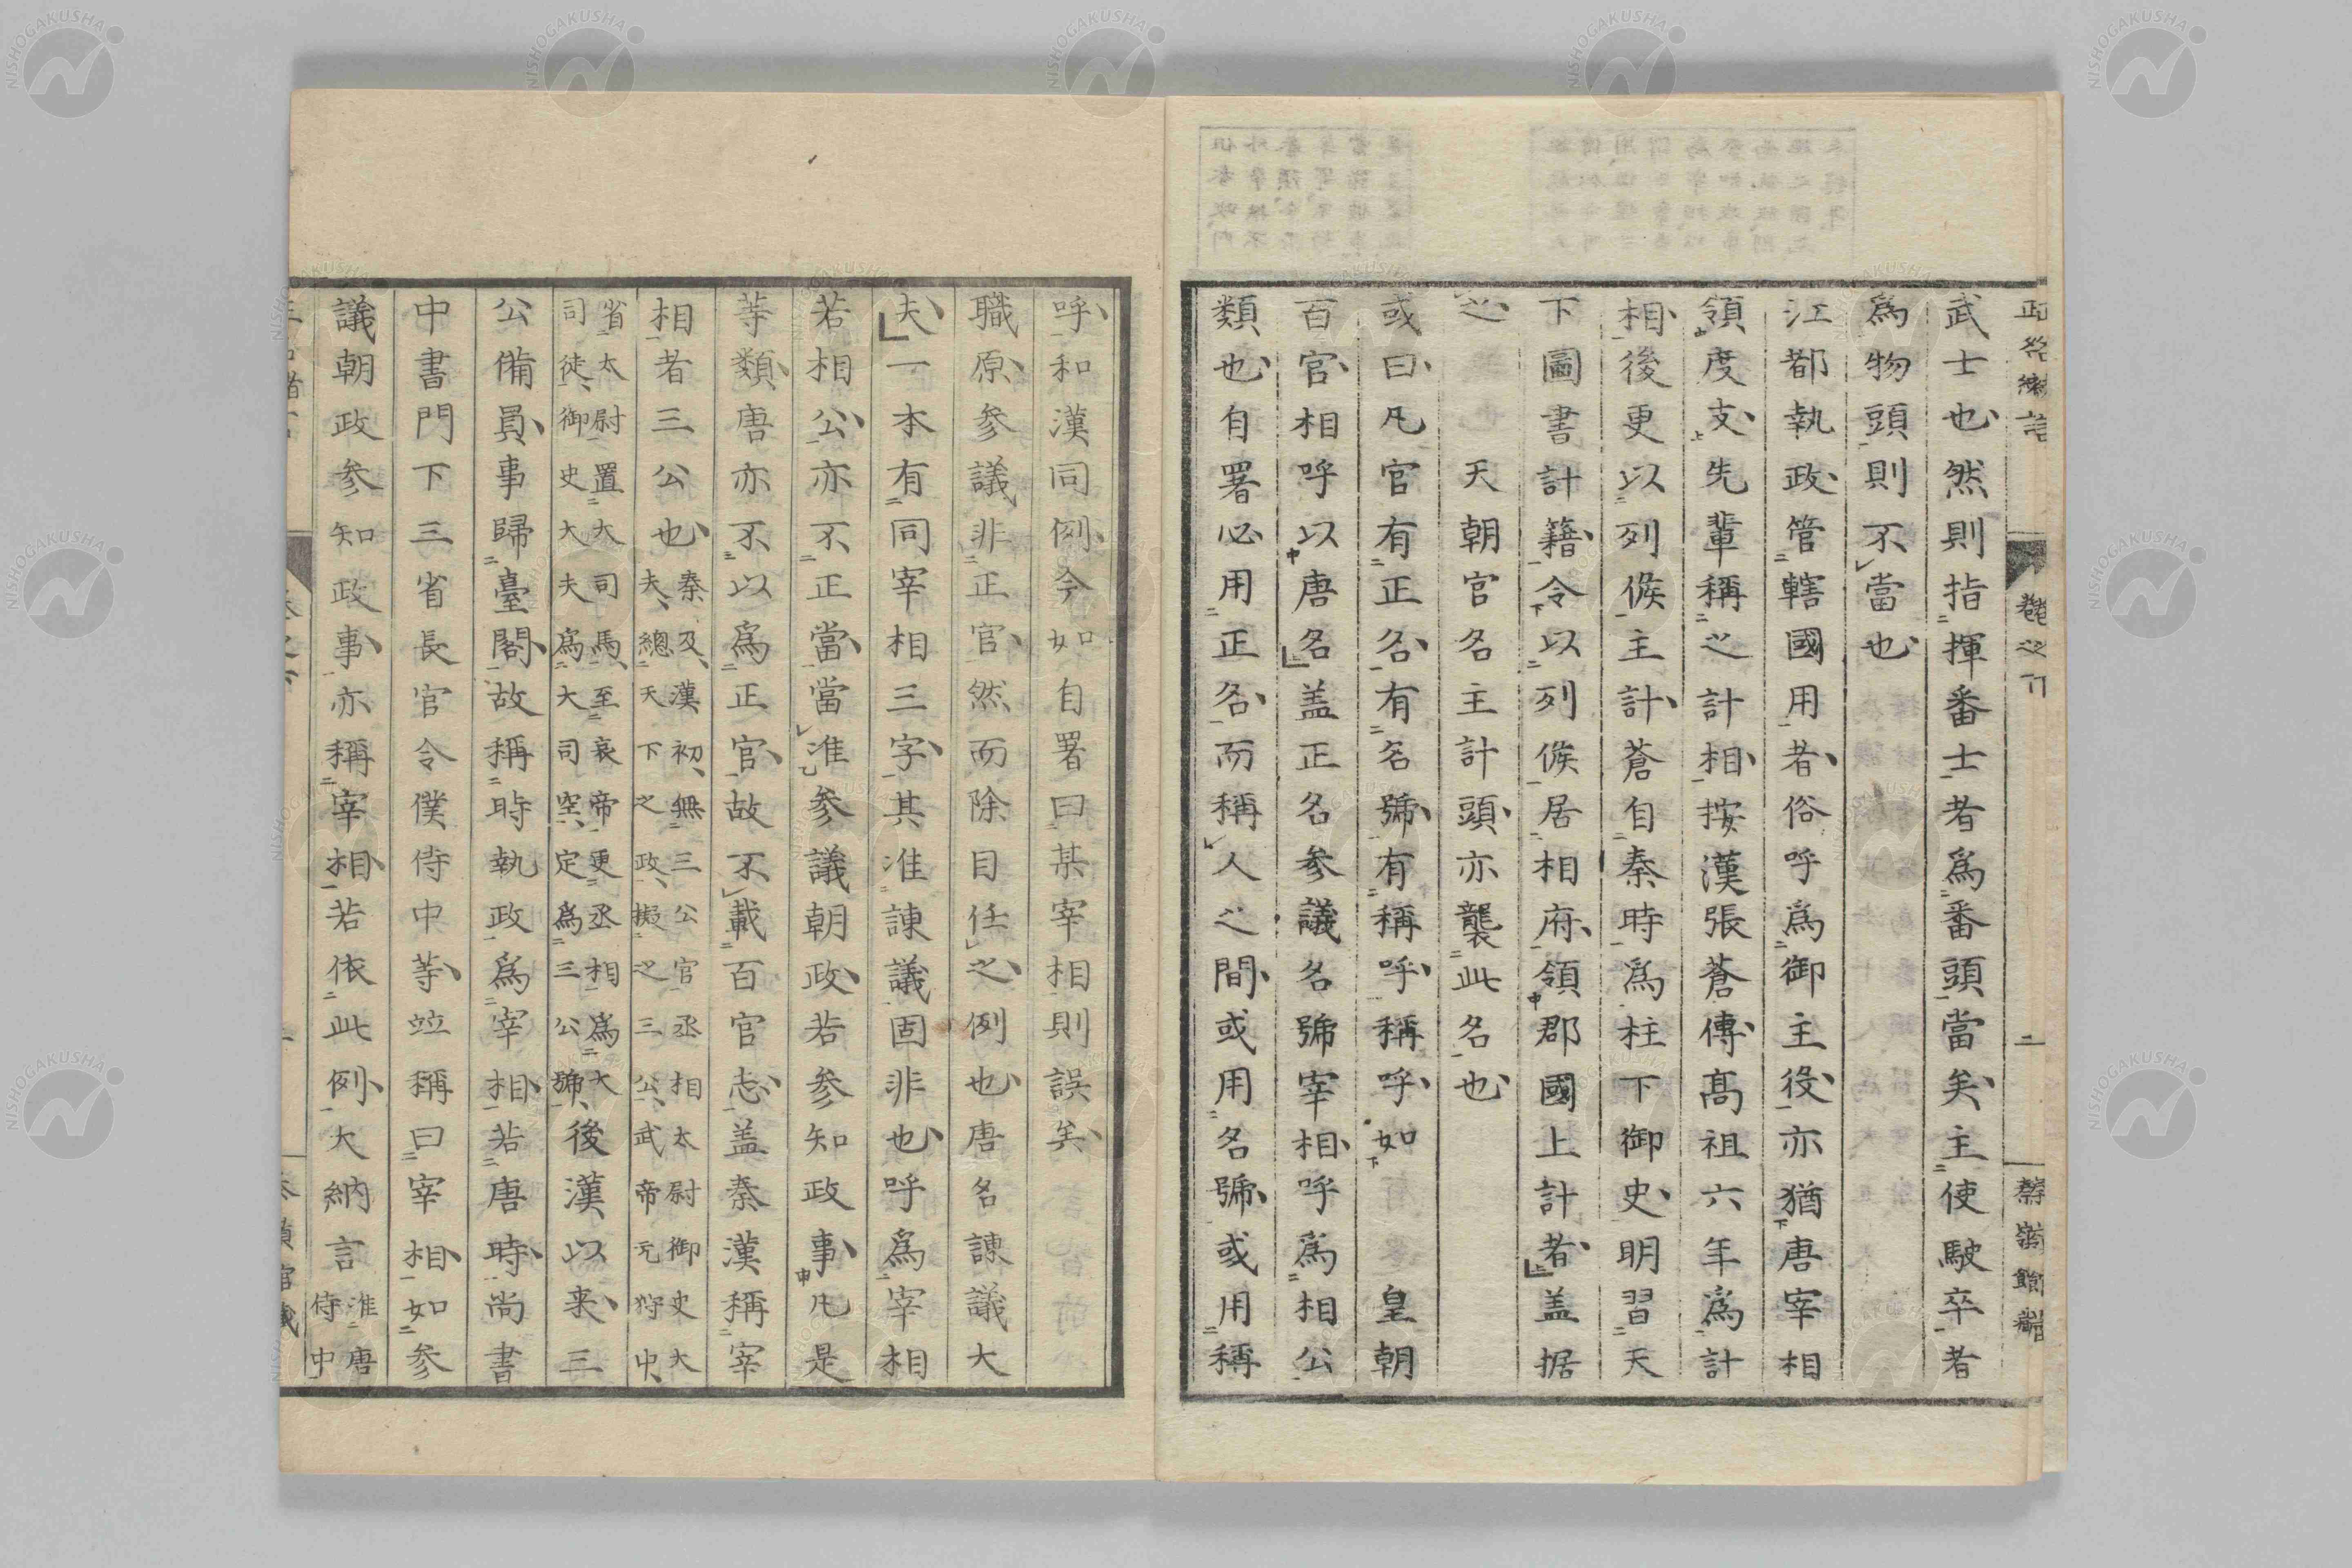 武士也然則指揮番士者爲番頭當矣主使駛卒者
爲物頭則不當也
江都執政管轄國用者俗呼爲御主役亦猶唐宰相
領度支先輩稱之計相按漢張蒼傳髙祖六年爲計
相後更以列侯主計蒼自秦時爲柱下御史明習天
下圖書計籍令以列侯居相府領郡國上計者盖据
之 天朝官名主計頭亦襲此名也
或曰凡官有正名有名號有稱呼稱呼如 皇朝
百官相呼以唐名盖正名参議名號宰相呼爲相公
類也自署必用正名而稱人之間或用名號或用稱
呼和漢同例今如自署曰某宰相則誤矣
職原参議非正官然而除目任之例也唐名諌議大
夫一本有同宰相三字其准諌議固非也呼爲宰相
若相公亦不正當當准参議朝政若参知政事凡是
等類唐亦不以爲正官故不載百官志盖秦漢稱宰
相者三公也秦及漢初無三公官丞相太尉御史大
夫總天下之政擬之三公武帝元狩中
省太尉置大司馬至哀帝更丞相爲大
司徒御史大夫爲大司空定爲三公號後漢以来三
公備員事歸臺閣故稱時執政爲宰相若唐時尚書
中書門下三省長官令僕侍中等竝稱曰宰相如参
議朝政参知政事亦稱宰相若依此例大納言准唐
侍中
NISHOGAKUSHA